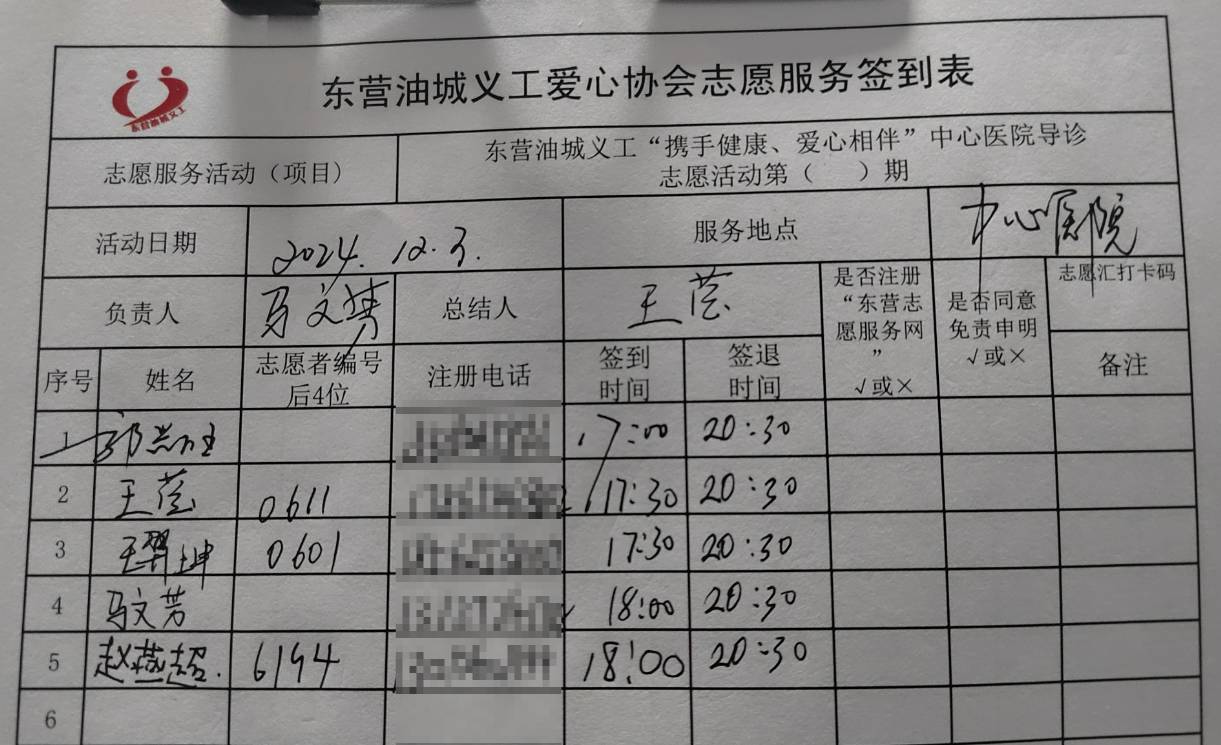 东营油城义工爱心协会志愿服务签到表
东营油城义工
志愿服务活动（项目）
东营油城义工“携手健康、爱心相伴”中心医院导诊
志愿活动第（ ）期
活动日期
2024.12.3.
服务地点
中心医院
负责人
马文芳
总结人
王莹
是否注册
“东营志
愿服务网
”
√或×
是否同意
免责申明
√或×
志愿汇打卡码
备注
序号
姓名
志愿者编号
后4位
注册电话
签到
时间
签退
时间
1 17:00 20:30
2 王莹 0611 17:30 20:30
3 0601 17:30 20:30
4 马文芳 18:00 20:30
5 赵燕超. 6194 18:00 20:30
6